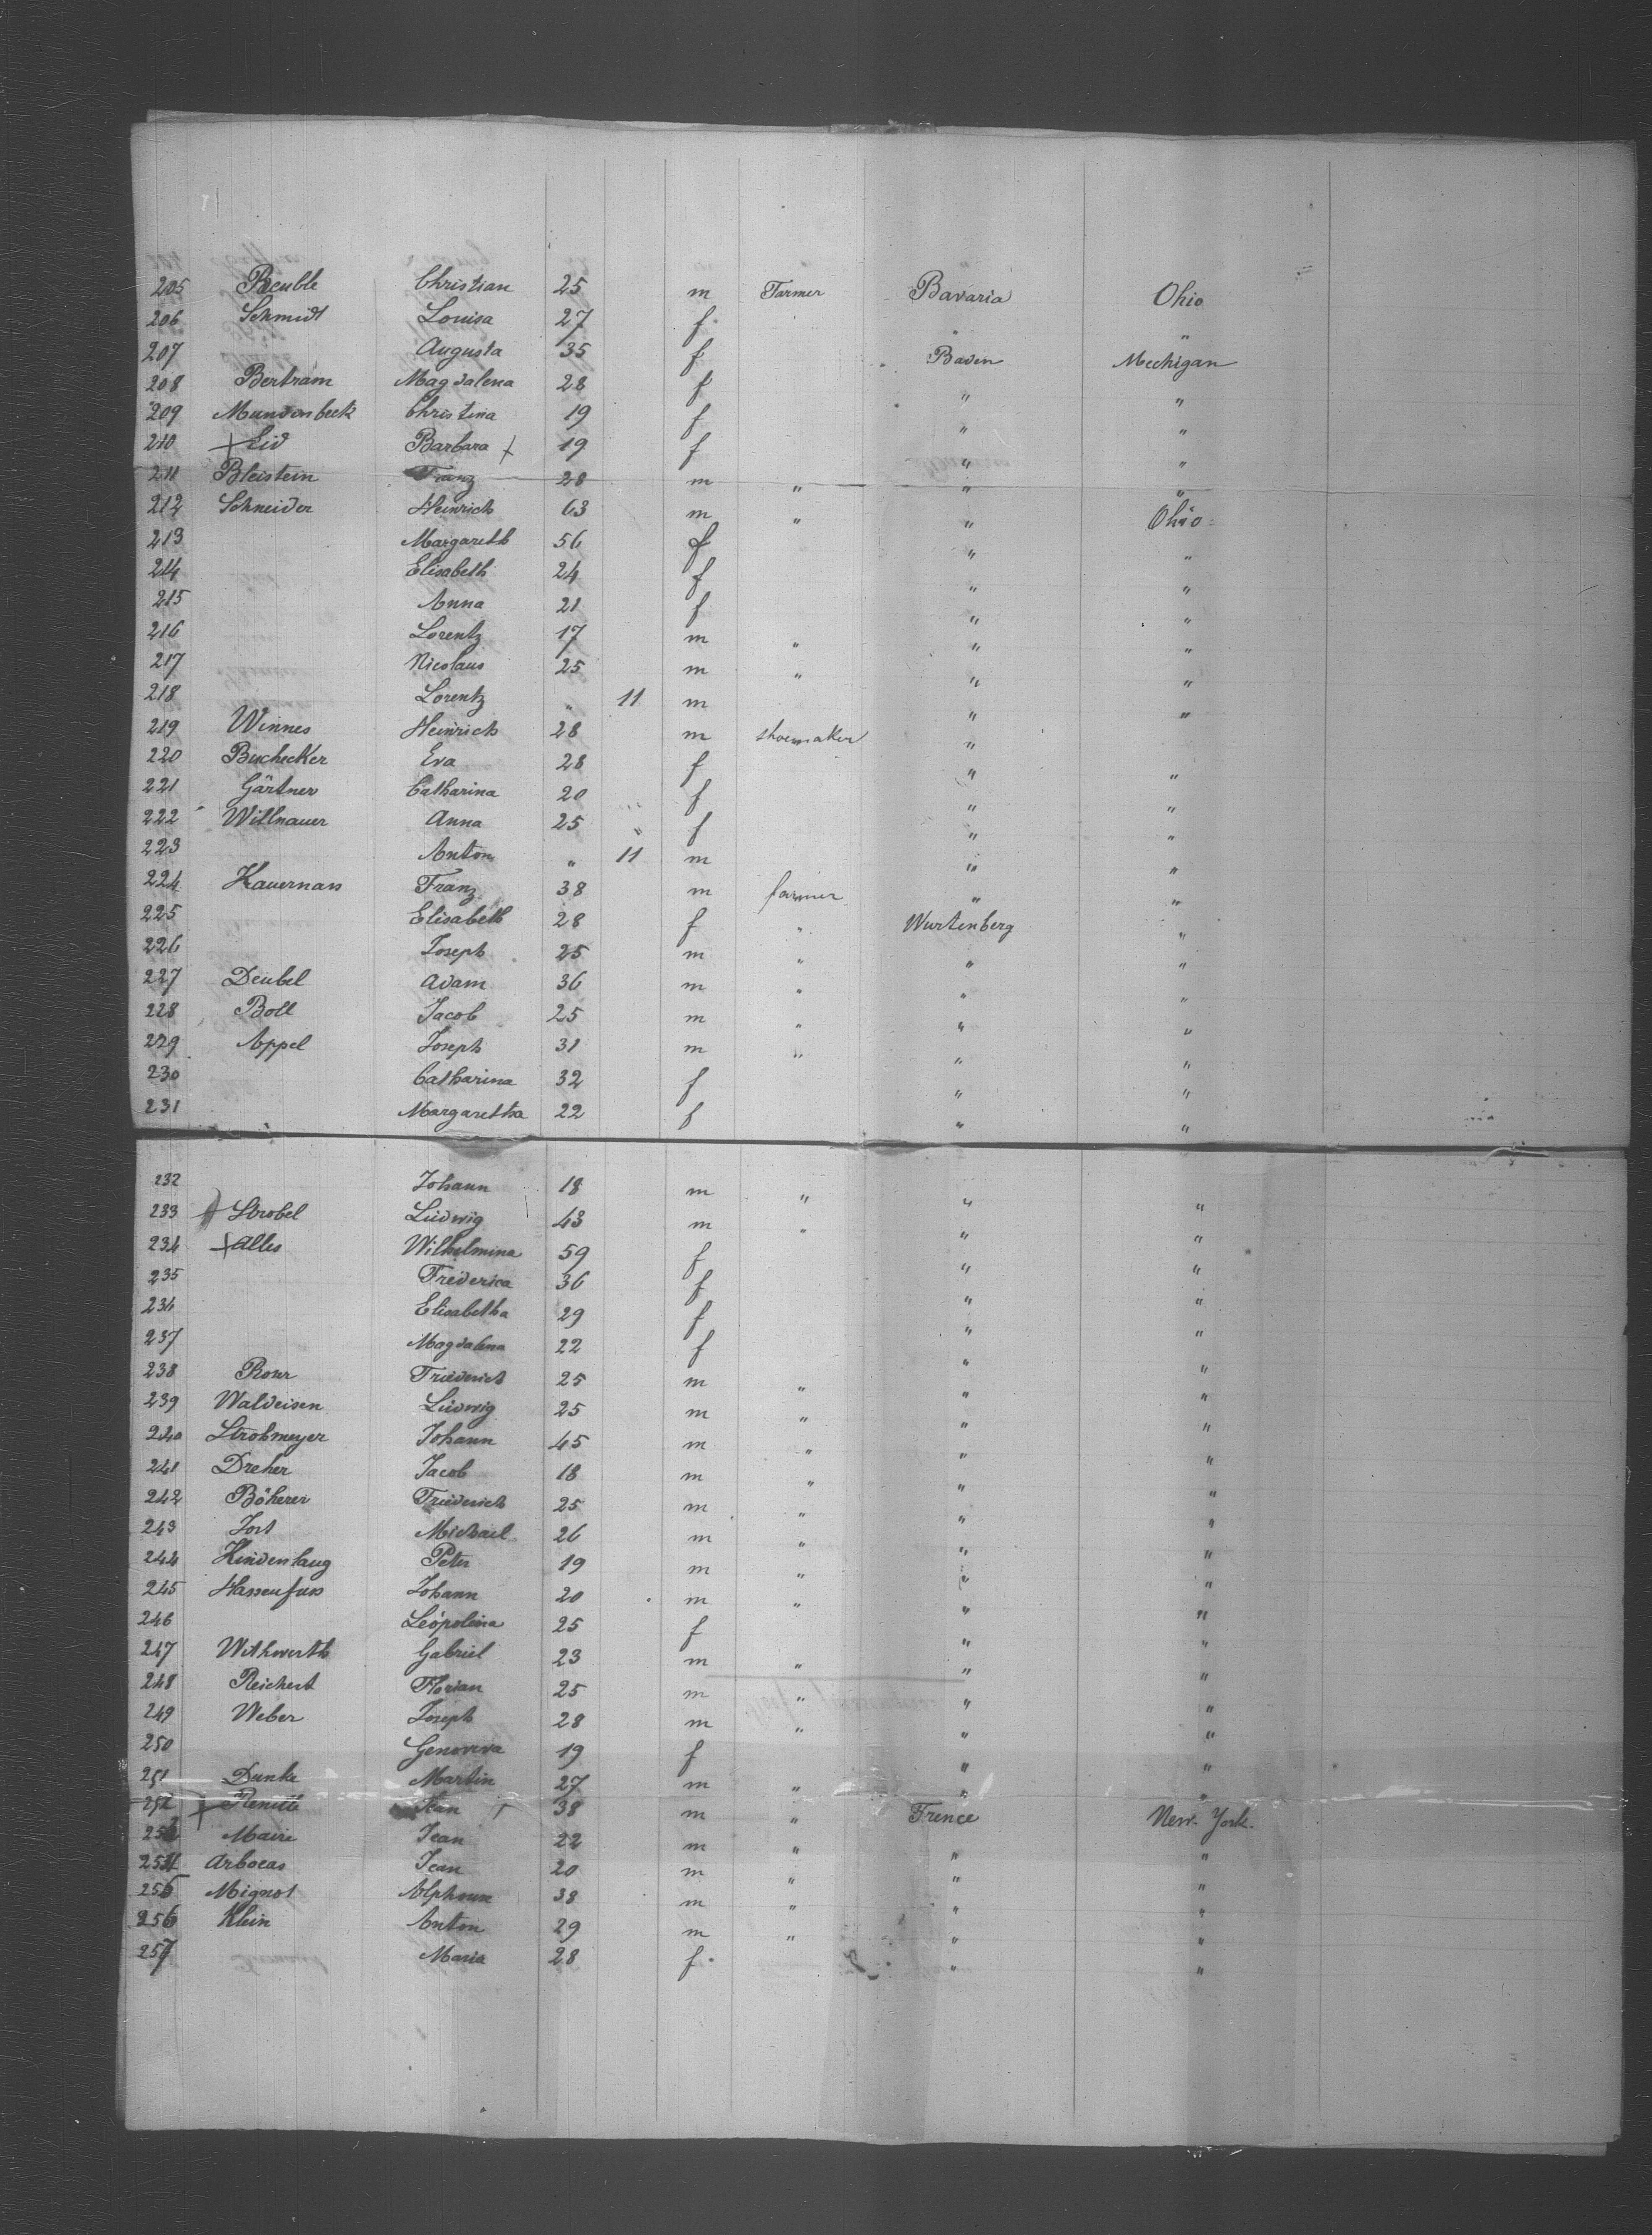 205 Beuble Christian 25 m Farmer Bavaria Ohio
206 Schmidt Louisa 27 f " "
207 Augusta 35 f Baden Mechigan
208 Bertram Magdalena 28 f " "
209 Mundenbeck Christina 19 f " "
210 + Eid Barbara + 19 f " "
211 Bleistein Franz 28 m " " "
212 Schneider Heinrich 63 m " " Ohio
213 Margareth 56 f " "
214 Elisabeth 24 f " "
215 Anna 21 f " "
216 Lorentz 17 m " " "
217 Nicolaus 25 m " " "
218 Lorentz " 11 m " "
219 Winnes Heinrich 28 m shoemaker "
220 Buchecker Eva 28 f " "
221 Gärtner Catharina 20 f " "
222 Willnauer Anna 25 " f " "
223 Anton " 11 m " "
224 Kauernass Franz 38 m farmer " "
225 Elisabeth 28 f " Wurtenberg "
226 Joseph 25 m " " "
227 Deubel Adam 36 m " " "
228 Boll Jacob 25 m " " "
229 Appel Joseph 31 m " " "
230 Catharina 32 f " "
231 Margaretha 22 f " "
232 Johann 18 m " " "
233 + Strobel Ludwig 43 m " " "
234 + Alles Wilhelmina 59 f " "
235 Frederica 36 f " "
236 Elisabetha 29 f " "
237 Magdalena 22 f " "
238 Friederich 25 m " " "
239 Waldeisen Ludwig 25 m " " "
240 Strohmeyer Johann 45 m " " "
241 Dreher Jacob 18 m " " "
242 Böherer Friederich 25 m " " "
243 Jost Michael 26 m " " "
244 Hindenlaug Peter 19 m " " "
245 Hassenfuss Johann 20 m " " "
246 Leopolina 25 f " "
247 Withwerth Gabriel 23 m " " "
248 Reichert Florian 25 m " " "
249 Weber Joseph 28 m " " "
250 Genoveva 19 f " "
251 Dunke Martin 27 m " " "
252 + Jean + 38 m " Frence New-York.
253 Maire Jean 22 m " " "
254 Arbocas Jean 20 m " " "
255 Mignot Alphonse 38 m " " "
256 Klein Anton 29 m " " "
257 Maria 28 f " "